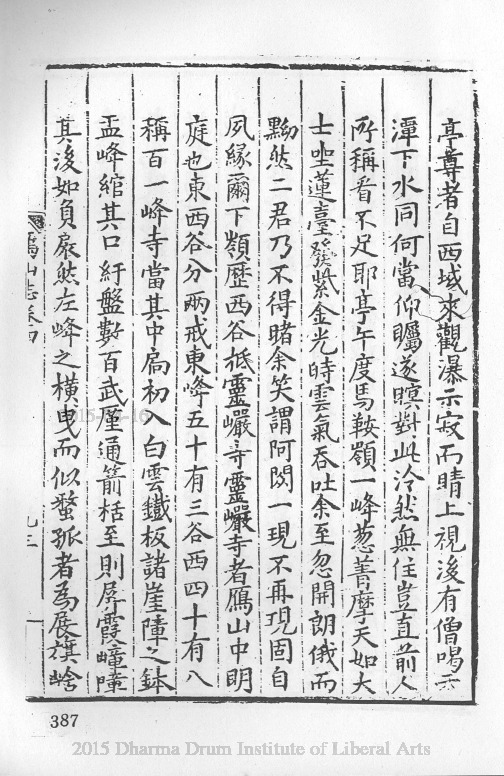 亭尊者自西域來觀瀑示寂而睛上視後有僧喝云
潭下水同何當仰矚遂瞑對此泠然無住豈直前人
所稱看不足耶亭午度馬鞍嶺一峰葱菁摩天如大
士坐蓮臺發紫金光時雲氣吞吐余至忽開朗俄而
黝然二君乃不得睹余笑謂阿閦一現不再現固自
夙緣爾下嶺歷西谷抵靈巖寺靈巖寺者鴈山中明
庭也東西谷分兩戒東峰五十有三谷西四十有八
稱百一峰寺當其中扃初入白雲鐵板諸崖障之鉢
盂峰綰其口紆盤數百武厪通箭栝至則屏霞嶂障
其後如負扆然左峰之橫曳而似蝥弧者為展旗嶂
山志卷四
九三
387
2015 Dharma Drum Institute of Liberal Arts